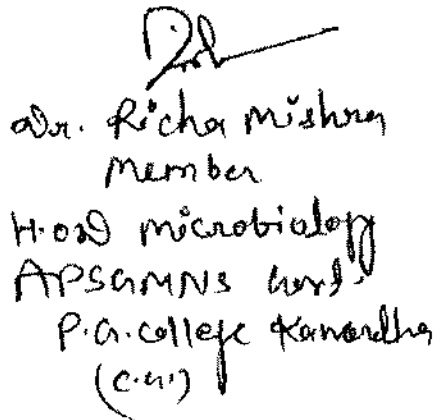 Dr. Richa Mishra
Member
H.O.D microbiology
APSGMNS Govt.
P.G. college Kawardha
(C.G.)